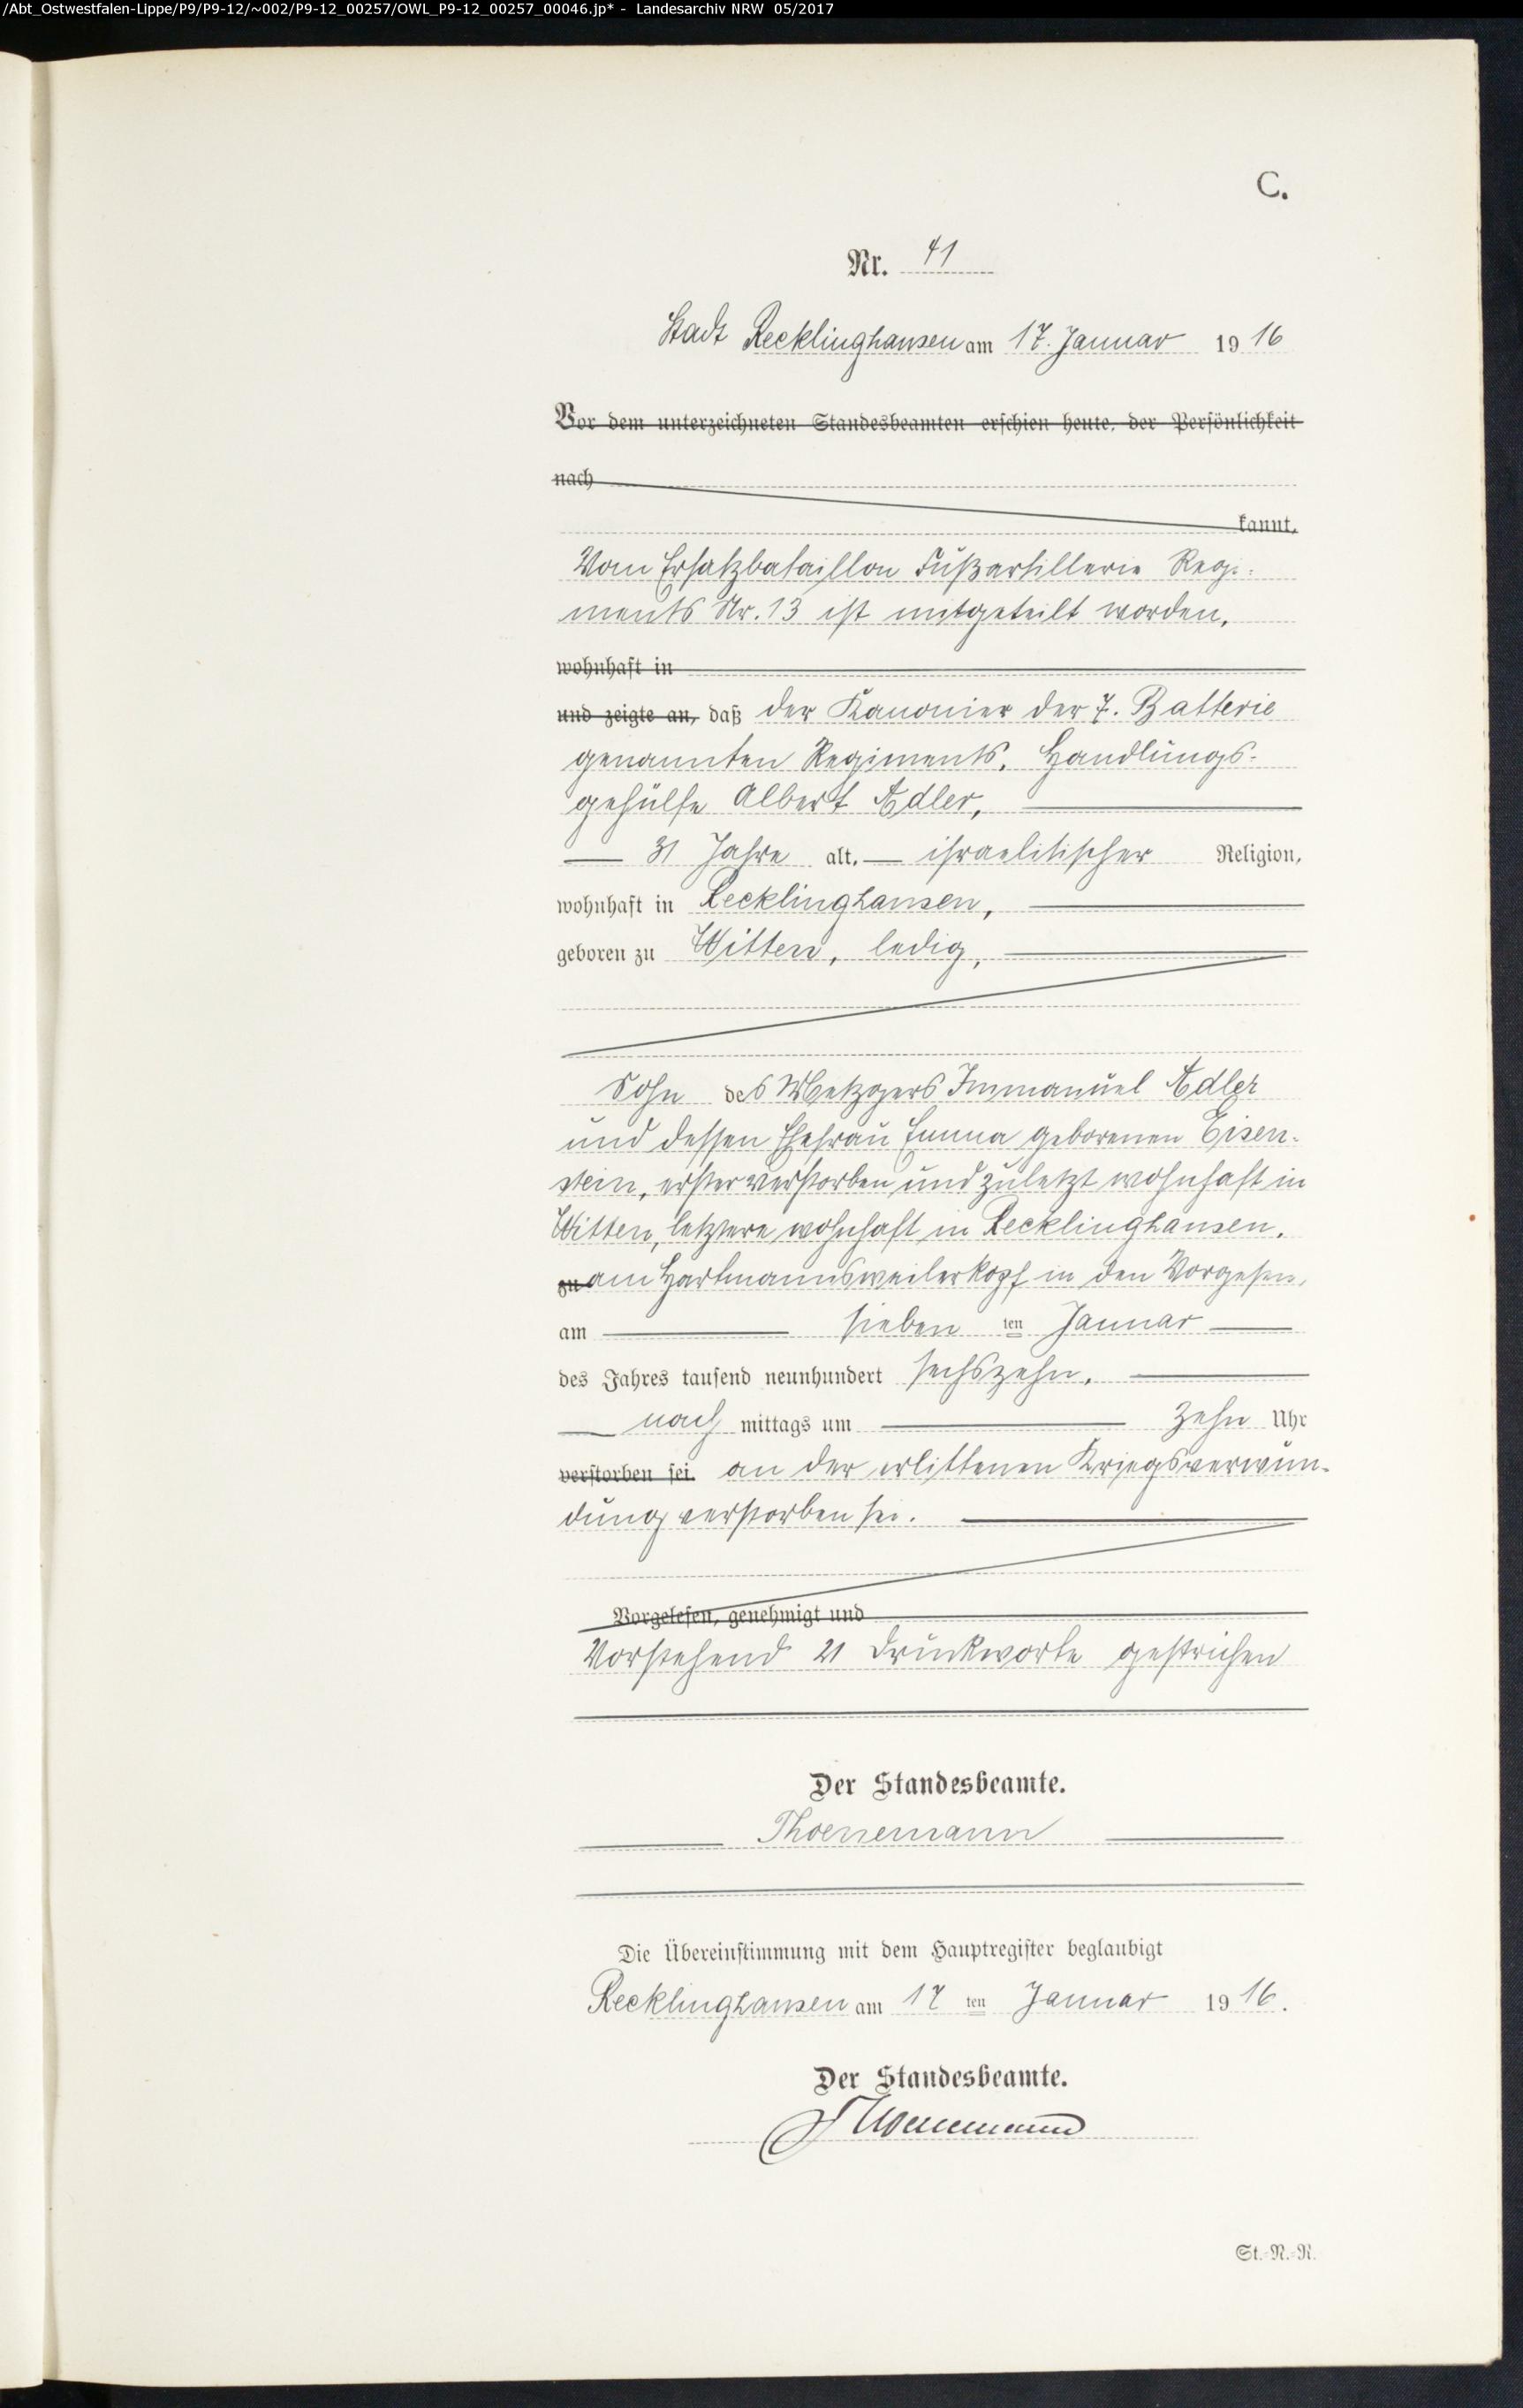 /Abt_Ostwestfalen-Lippe/P9/P9-12/~002/P9-12_00257/OWL_P9-12_00257_00046.jp* - Landesarchiv NRW 05/2017
C.
Nr. 41
Stadt Recklinghausen am 17. Januar 1916
Vor dem unterzeichneten Standesbeamten erschien heute, der Persönlichkeit
nach
kannt,
Vom Ersatzbataillon Fußartillerie Regi-
ments Nr. 13 ist mitgeteilt worden,
wohnhaft in
und zeigte an, daß der Kanonier der 7. Batterie
genannten Regiments, Handlungs-
gehülfe Albert Adler,
31 Jahre alt, israelitischer Religion,
wohnhaft in Recklinghausen,
geboren zu Witten, ledig,
Sohn des Metzgers Immanuel Adler
und dessen Ehefrau Emma geborenen Eisen-
stein, erster verstorben und zuletzt wohnhaft in
Witten, letztere wohnhaft in Recklinghausen,
zu am Hartmannsweilerkopf in den Vogesen,
am sieben ten Januar
des Jahres tausend neunhundert sechszehn,
nach mittags um zehn Uhr
verstorben sei. an der erlittenen Kriegsverwun-
dung verstorben sei.
Vorgelesen, genehmigt und
Vorstehend 21 Druckworte gestrichen
Der Standesbeamte.
Thoenemann
Die Übereinstimmung mit dem Hauptregister beglaubigt
Recklinghausen am 17 ten Januar 1916.
Der Standesbeamte.
Thoenemann
St.-N.-R.